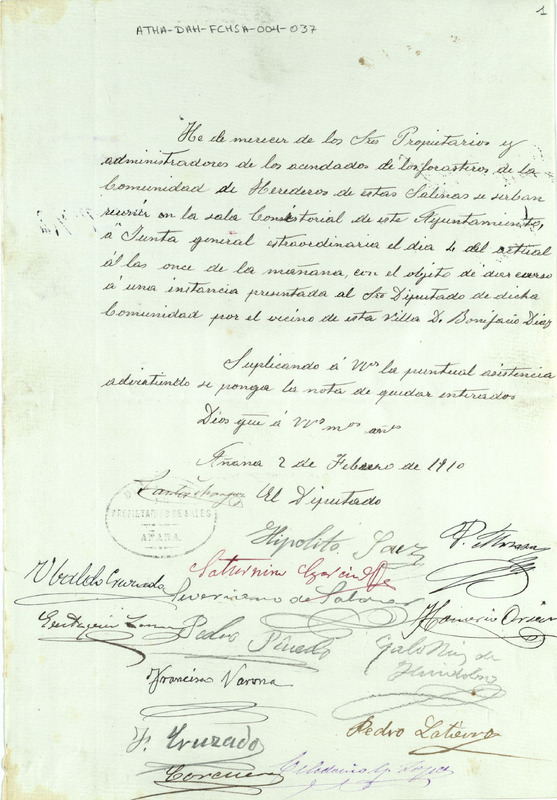 1
ATHA-DAH-FCHSA-004-037
He de merecer de los Sres Propietarios y
administradores de los acendados de los forasteros de la
Comunidad de Herederos de estas Salinas se sirban
reunir en la sala Consistorial de este Ayuntamiento,
á Junta general extraordinaria el dia 4 del actual
á las once de la mañana, con el objeto de dar curso
á una instancia presentada al Sro Diputado de dicha
Comunidad por el vecino de esta Villa D. Bonifacio Diaz
Suplicando á Vvs la puntual asistencia
advirtiendo se ponga la nota de quedar enterados
Dios gue á Vvs ms ans
Añana 2 de Febrero de 1910
El Diputado
PROPIETARIOS DE SALES
AÑANA
Hipolito Saez
Ubaldo Cruzado
Saturnino Garcia
Severiano de Salomar
Pedro Pinedo
Honorio
Galo Ruiz de
Francisco Varona
Pedro Latierro
Cruzado
Corcuera
Celedonio